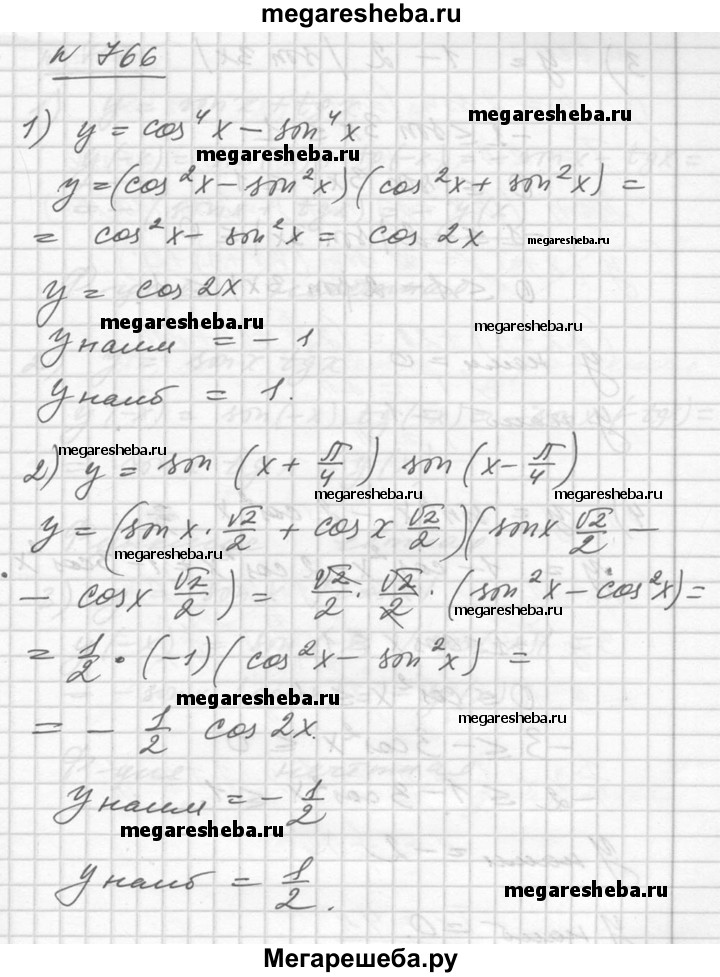 megaresheba.ru
№ 766
1) y = cos⁴x − sin⁴x
megaresheba.ru
megaresheba.ru
y = (cos²x − sin²x)(cos²x + sin²x) =
= cos²x − sin²x = cos 2x
megaresheba.ru
y = cos 2x
megaresheba.ru
megaresheba.ru
y наим = −1
y наиб = 1.
megaresheba.ru
2) y = sin (x + π/4) sin (x − π/4)
megaresheba.ru
megaresheba.ru
y = (sin x · √2/2 + cos x √2/2)(sin x √2/2 −
megaresheba.ru
− cos x √2/2) = √2/2 · √2/2 · (sin²x − cos²x) =
megaresheba.ru
= 1/2 · (−1)(cos²x − sin²x) =
megaresheba.ru
= − 1/2 cos 2x.
megaresheba.ru
y наим = − 1/2
megaresheba.ru
y наиб = 1/2.
megaresheba.ru
Мегарешеба.ру